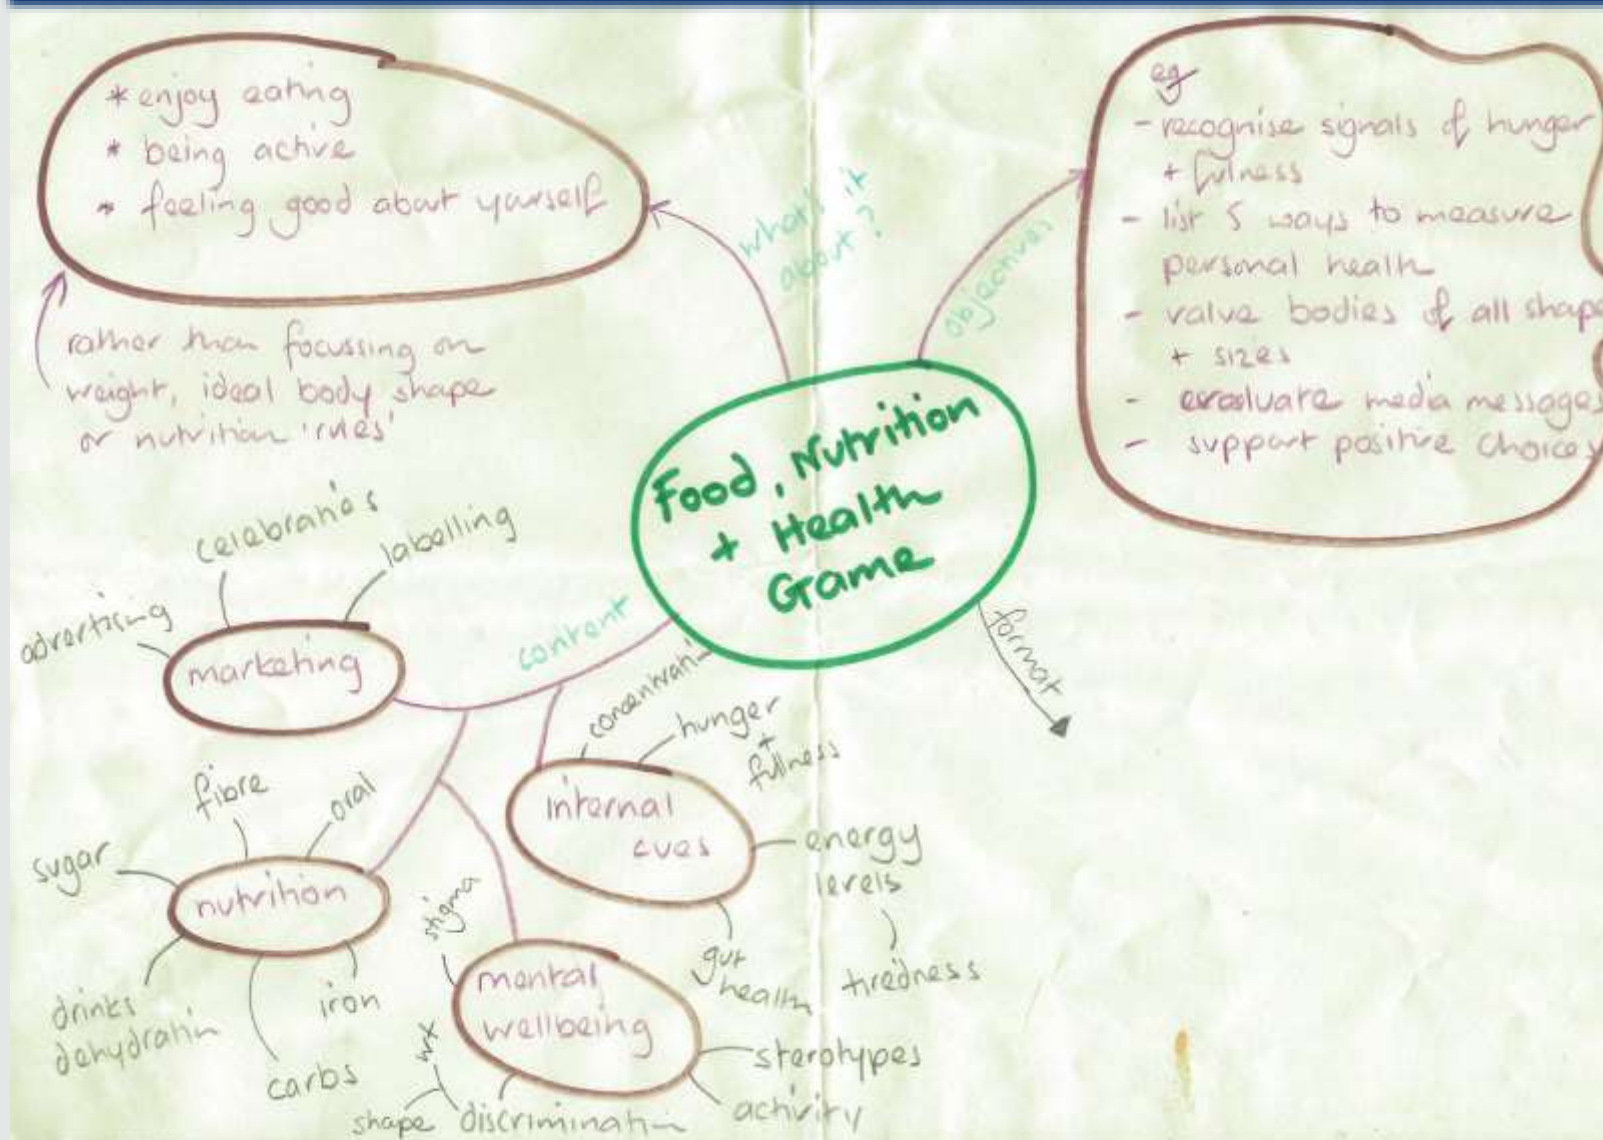 * enjoy eating
* being active
* feeling good about yourself
rather than focussing on
weight, ideal body shape
or nutrition 'rules'
what's it
about?
objectives
eg
- recognise signals of hunger
+ fulness
- list 5 ways to measure
personal health
- value bodies of all shape
+ sizes
- evaluate media messages
- support positive choices
Food, Nutrition
+ Health
Game
format
content
marketing
advertising
celebrities
labelling
internal
cues
concentrati
hunger
+
fullness
energy
levels
tiredness
gut
health
nutrition
sugar
fibre
oral
drinks
dehydratin
carbs
iron
mental
wellbeing
stigma
wt
shape
discriminatin
sterotypes
activity